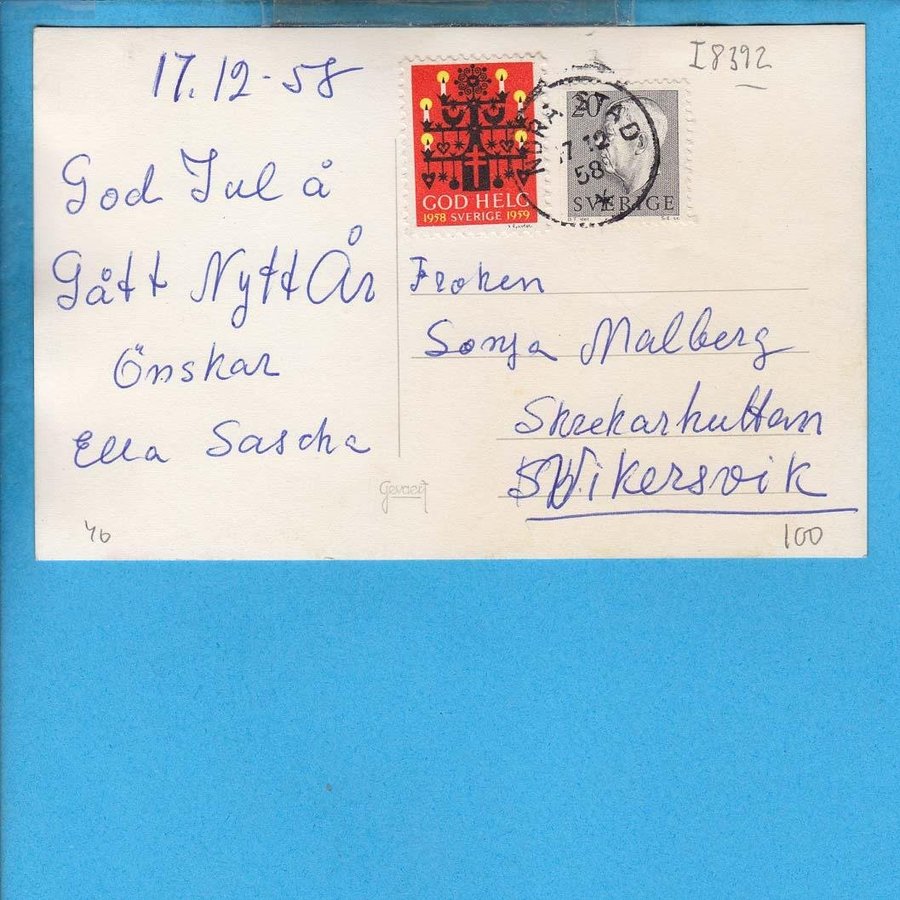 17.12-58
God Jul å
Gått Nytt År
Önskar
Ella Sascha
GOD HELG
1958 SVERIGE 1959
20
SVERIGE
17 12
58
I8392
Froken
Sonja Malberg
Skrekarhuttan
Wikersvik
Gevaert
46
100